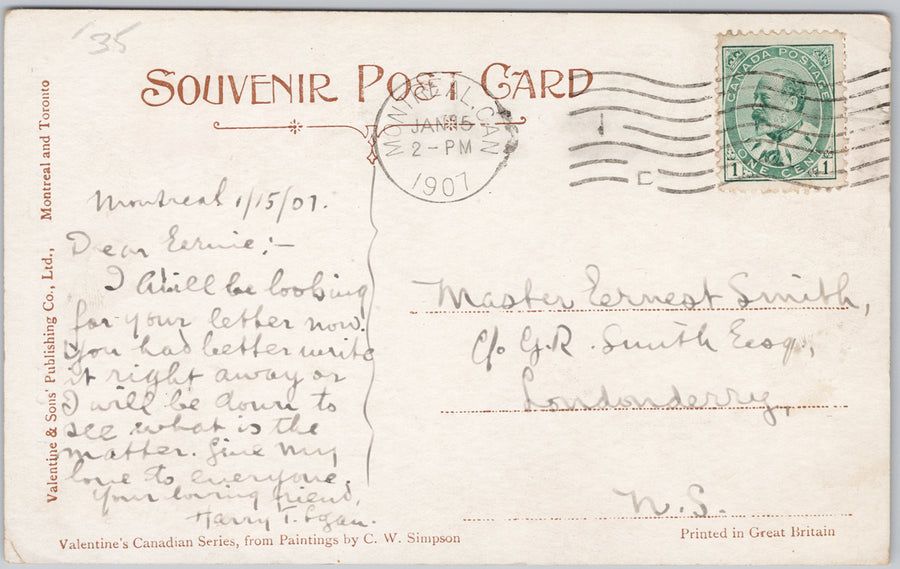 '35
SOUVENIR POST CARD
MONTREAL, CAN
JAN 15
2 - PM
1907
CANADA POSTAGE
ONE CENT
1 1
Montreal and Toronto
Valentine & Sons' Publishing Co., Ltd.,
Montreal 1/15/07.
Dear Ernie;-
I will be looking
for your letter now.
You had better write
it right away or
I will be down to
see what is the
matter. Give my
love to everyone.
Your loving friend,
Harry T. Egan.
Master Ernest Smith,
c/o G.R. Smith Esq,
Londonderry,
N.S.
Valentine's Canadian Series, from Paintings by C. W. Simpson
Printed in Great Britain